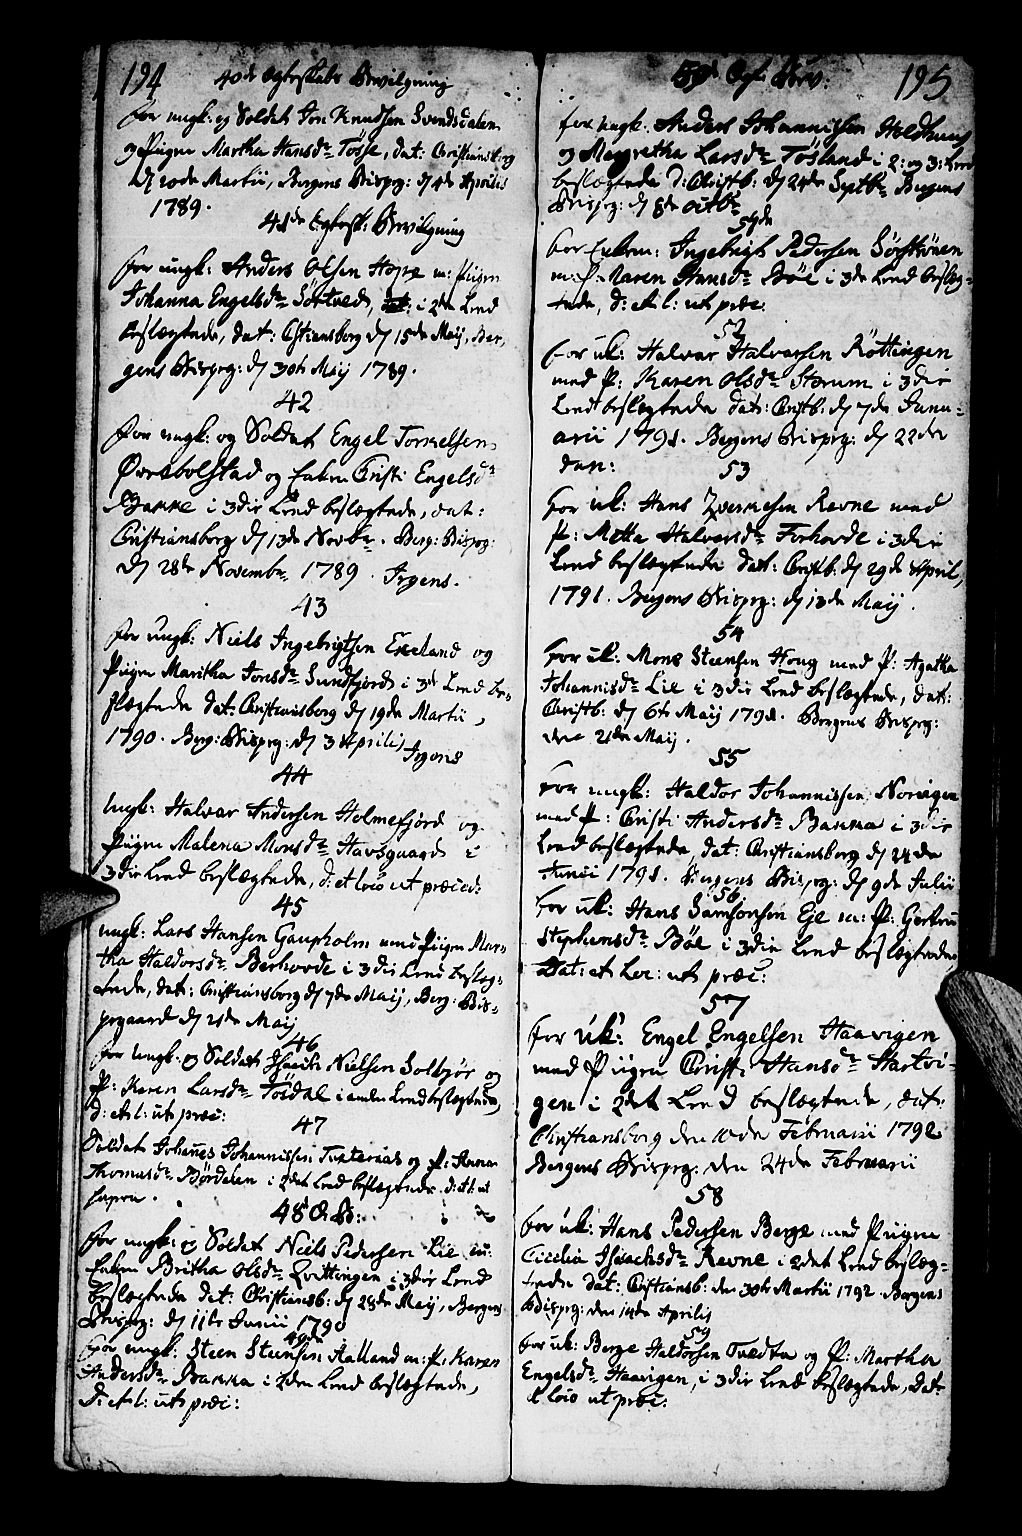 194
40de Egteskabs Bevilgning
for ungk: og Soldat Jon Knudsen Svendsdalen
og Piigen Martha Hansdr Tösse, dat: Christiansborg
d 20de Martii, Bergens Bispeg: d 4de Aprilis
1789.
41de Egtesk: Bevilgning
for ungk: Anders Olsen Hope m: Piigen
Johanna Engelsdr Sörtved, i 2det Leed
beslægtede, dat: Cristiansborg d 15de Maij, Ber-
gens Bispeg: d 30te Maij 1789.
42
for ungk: og Soldat Engel Tormelsen
Övrebolstad og Enken Cristi Engelsdr
Bakke i 3die Leed beslægtede, dat:
Cristiansborg d 13de Novbr. Berg: Bispeg:
d 28de Novembr 1789. Irgens.
43
for Ungk: Niels Ingebrigtsen Eikeland og
Piigen Maritha Jonsdr Sundfjord i 3de Leed be-
slægtede dat: Christiansborg d 19de Martii,
1790. Berg: Bispeg: d 3 Aprilis, Irgens
44
Ungk: Halvar Andersen Holmefjord og
Piigen Malena Monsdr Havsgaard i
3die Leed beslægtede, d: et loco ut præced:
45
ungk: Lars Hansen Gaupholm med Piigen Mar-
tha Haldorsdr Berhovde i 3die Leed beslæg-
tede, dat: Christiansborg d 7de Maij, Berg: Bis-
pegaard d 21de Maij
46
for Ungk: og Soldat Nielsen Solbjör og
P: Karen Larsdr Tösdal i andet Leed beslægtede,
d: et l: ut præc:
47
Soldat Johanes Johannissen Tuxteraas og P: Anna
Thomasdr Bördalen i 2det Leed beslægtede. d: et l: ut
supra.
48 E: B:
for ungk: og Soldat Niels Pedersen Lie m:
Enken Britha Olsdr Qvittingen i 3die Leed
beslægtede dat: Christiansb: d 28de Maij, Bergens
Bispeg: d 11te Junii 1790
49de
for ungk: Steen Steensen Aalland m: P: Karen
Andersdr Bakka i 2den Leed beslægtede,
D: et l: ut præc:
195
50de Egt: Bev:
for ungk: Anders Johannissen Holdhuus
og Margretha Larsdr Tösland i 2: og 3: Leed
beslægtede d: Christb: d 24de Septbr Bergens
Bispeg: d 8de octbr
51de
for Enkem: Ingebrigt Pedersen Sörströnen
m: P: Maren Hansdr Böe i 3de Leed beslæg-
tede, d: et l: ut præc:
52
for uk: Halvar Halvorsen Röttingen
med P: Karen Olsdr Storum i 3die
Leed beslægtede dat: Christb: d 7de Janu-
arii 1791. Bergens Bispeg: d 22de
dan:
53
for uk: Hans Revne med
P: Metta Halversdr Forhovde i 3die
Leed beslægtede dat: Christb: d 29de April,
1791. Bergens Bispeg: d 13de Maij.
54
for uk: Mons Steensen Houg med P: Agatha
Johannisdr Lie i 3die Leed beslægtede, dat:
Christb: d 6te Maij 1791. Bergens Bispeg:
den 21de Maij.
55
for ungk: Haldor Johannissen Norvigen
med P: Christi Andersdr Bakka i 3die
Leed beslægtede, dat: Christiansborg d 24de
Junii 1791. Bergens Bispeg: d 9de Julii
56
for uk: Hans Samsonsen Eje m: P: Gertru
Stephensdr Böe i 3die Leed beslægtede,
Dat: et Loc: ut præc:
57
for uk: Engel Engelsen Haavigen
med Piigen Christi Hansdr Hartvi-
gen i 2det Leed beslægtede, dat:
Christiansborg den 10de Februarii 1792
Bergens Bispeg: den 24de Februarii
58
for uk: Hans Pedersen Berge med Piigen
Cicelia Isaachsdr Revne i 2det Leed beslæg-
tede dat: Christiansb: den 30te Martii 1792. Bergens
Bispeg: den 14de Aprilis
59
for uk: Berge Haldorsen Tuedta og P: Martha
Engelsdr Haavigen, i 3die Leed beslægtede, Dat:
et loco ut præc: